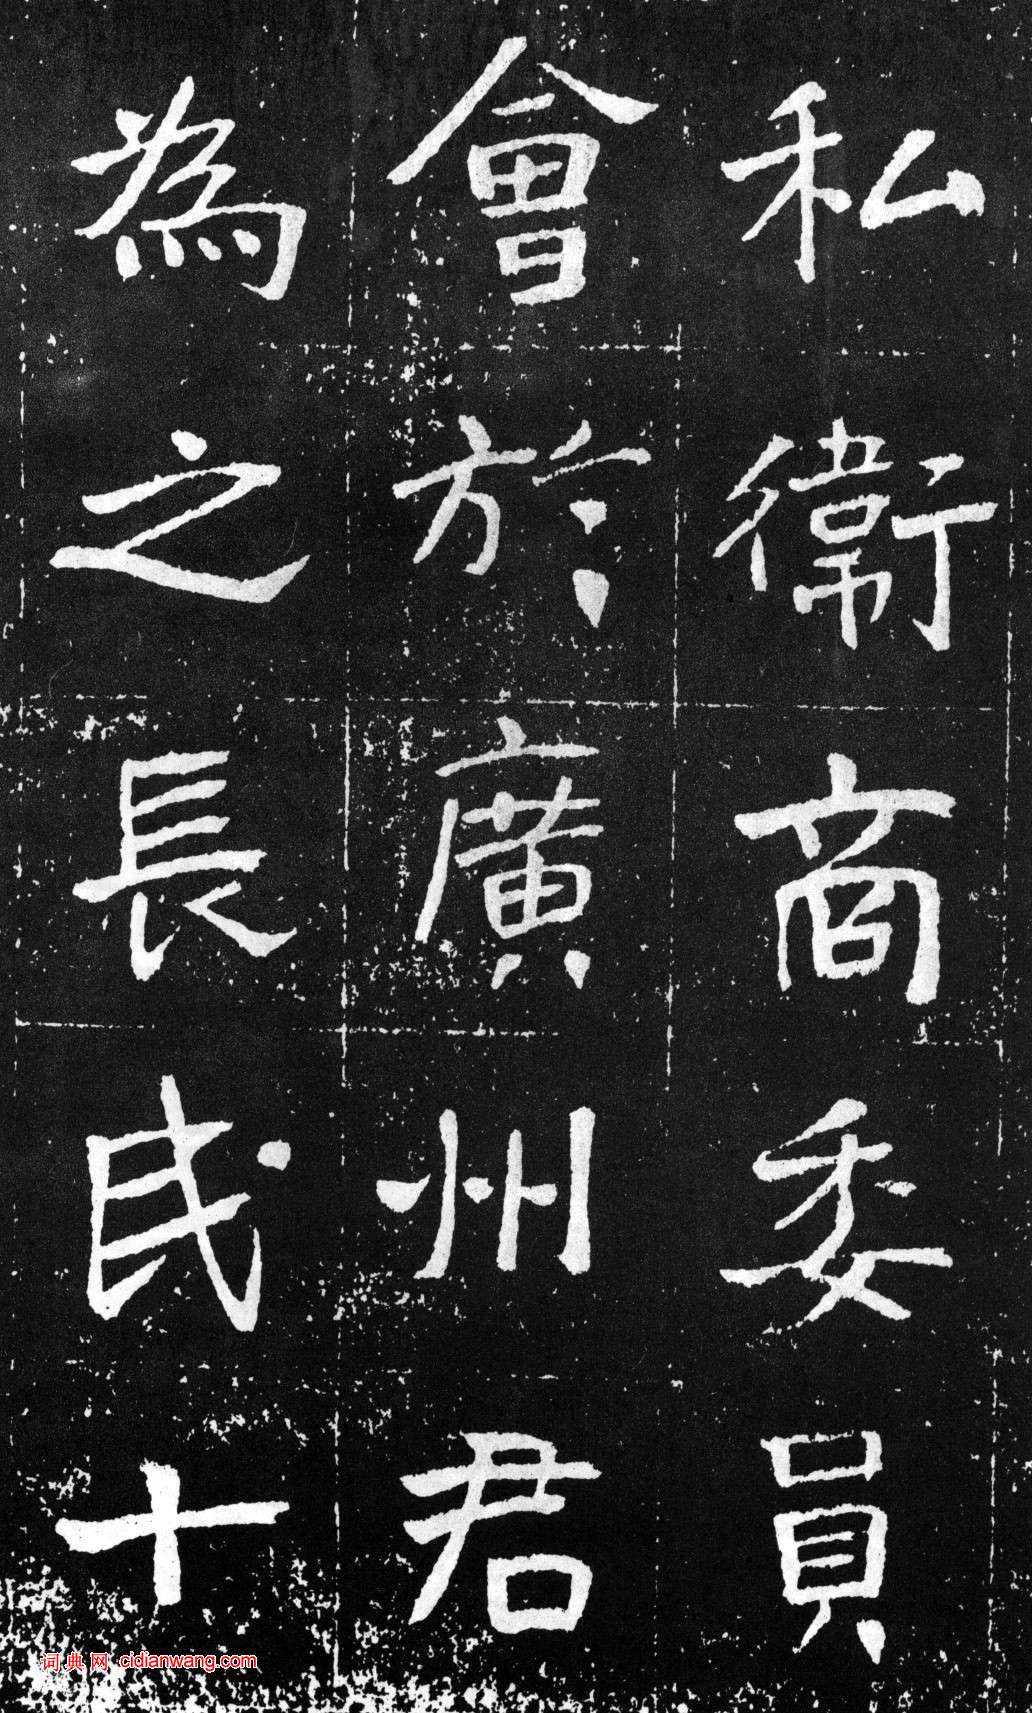 私衛商委員
會於廣州君
為之長民十
词典网 cidianwang.com